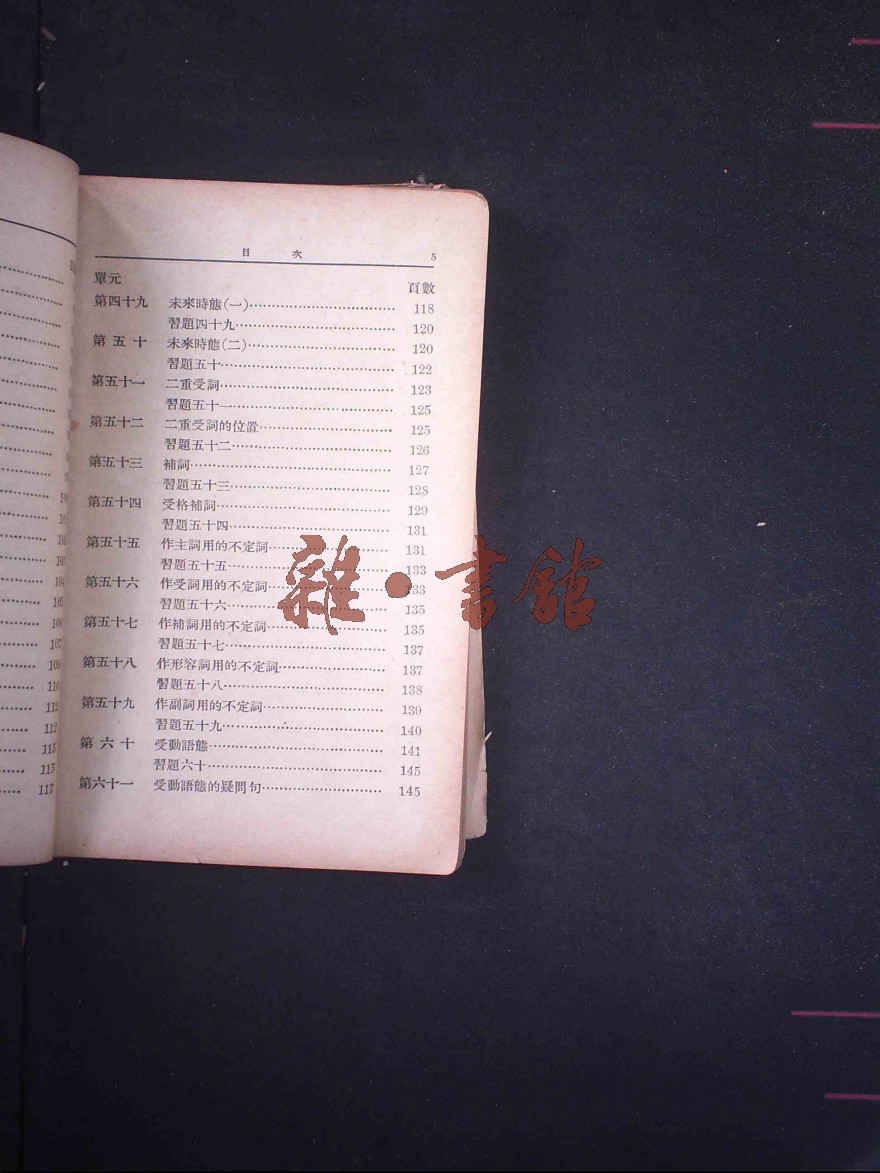 100
102
103
104
105
106
107
108
110
112
112
113
115
117
目 次 5
單元 頁數
第四十九 未來時態(一)…………………………… 118
習題四十九…………………………… 120
第五十 未來時態(二)…………………………… 120
習題五十…………………………… 122
第五十一 二重受詞…………………………… 123
習題五十一…………………………… 125
第五十二 二重受詞的位置…………………………… 125
習題五十二…………………………… 126
第五十三 補詞…………………………… 127
習題五十三…………………………… 128
第五十四 受格補詞…………………………… 129
習題五十四…………………………… 131
第五十五 作主詞用的不定詞…………………………… 131
習題五十五…………………………… 133
第五十六 作受詞用的不定詞…………………………… 133
習題五十六…………………………… 135
第五十七 作補詞用的不定詞…………………………… 135
習題五十七…………………………… 137
第五十八 作形容詞用的不定詞…………………………… 137
習題五十八…………………………… 138
第五十九 作副詞用的不定詞…………………………… 139
習題五十九…………………………… 140
第六十 受動語態…………………………… 141
習題六十…………………………… 145
第六十一 受動語態的疑問句…………………………… 145
雜·書館